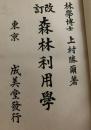 林學博士 上村勝爾著
改訂 森林利用學
東京 成美堂發行